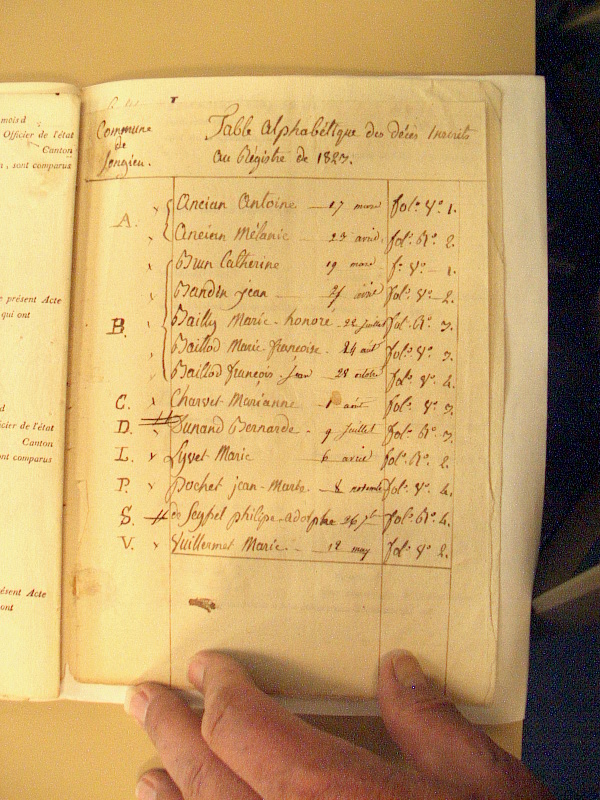 mois d
Officier de l'état
Canton
, sont comparus
e présent Acte
qui ont
d
icier de l'état
Canton
ont comparus
ésent Acte
ont
Commune
de
Songieu.
Table alphabétique des décès Inscrits
au Régistre de 1823.
A. Ancian Antoine 17 mars fol.° V.° 1.
Ancian Mélanie 23 avril fol.° R.° 2.
B. Brun Catherine 19 mars f.° V.° 1.
Bandin jean avril fol.° V.° 2.
Bailly Marie-honoré 22 juillet fol.° R.° 3.
Baillod Marie-françoise. 24 août fol.° V.° 3.
Baillod françois-jean 28 octobre fol.° V.° 4.
C. Charvet Marianne 1 août fol.° V.° 3.
D. Dunand Bernarde 9 juillet fol.° R.° 3.
L. Lyvet Marie 6 avril fol.° R.° 2.
P. Pochet jean-Marie 8 novembre fol.° V.° 4.
S. de Seyssel philipe-adolphe 26 7bre fol.° R.° 4.
V. Vuillermet Marie 18 may fol.° V.° 2.